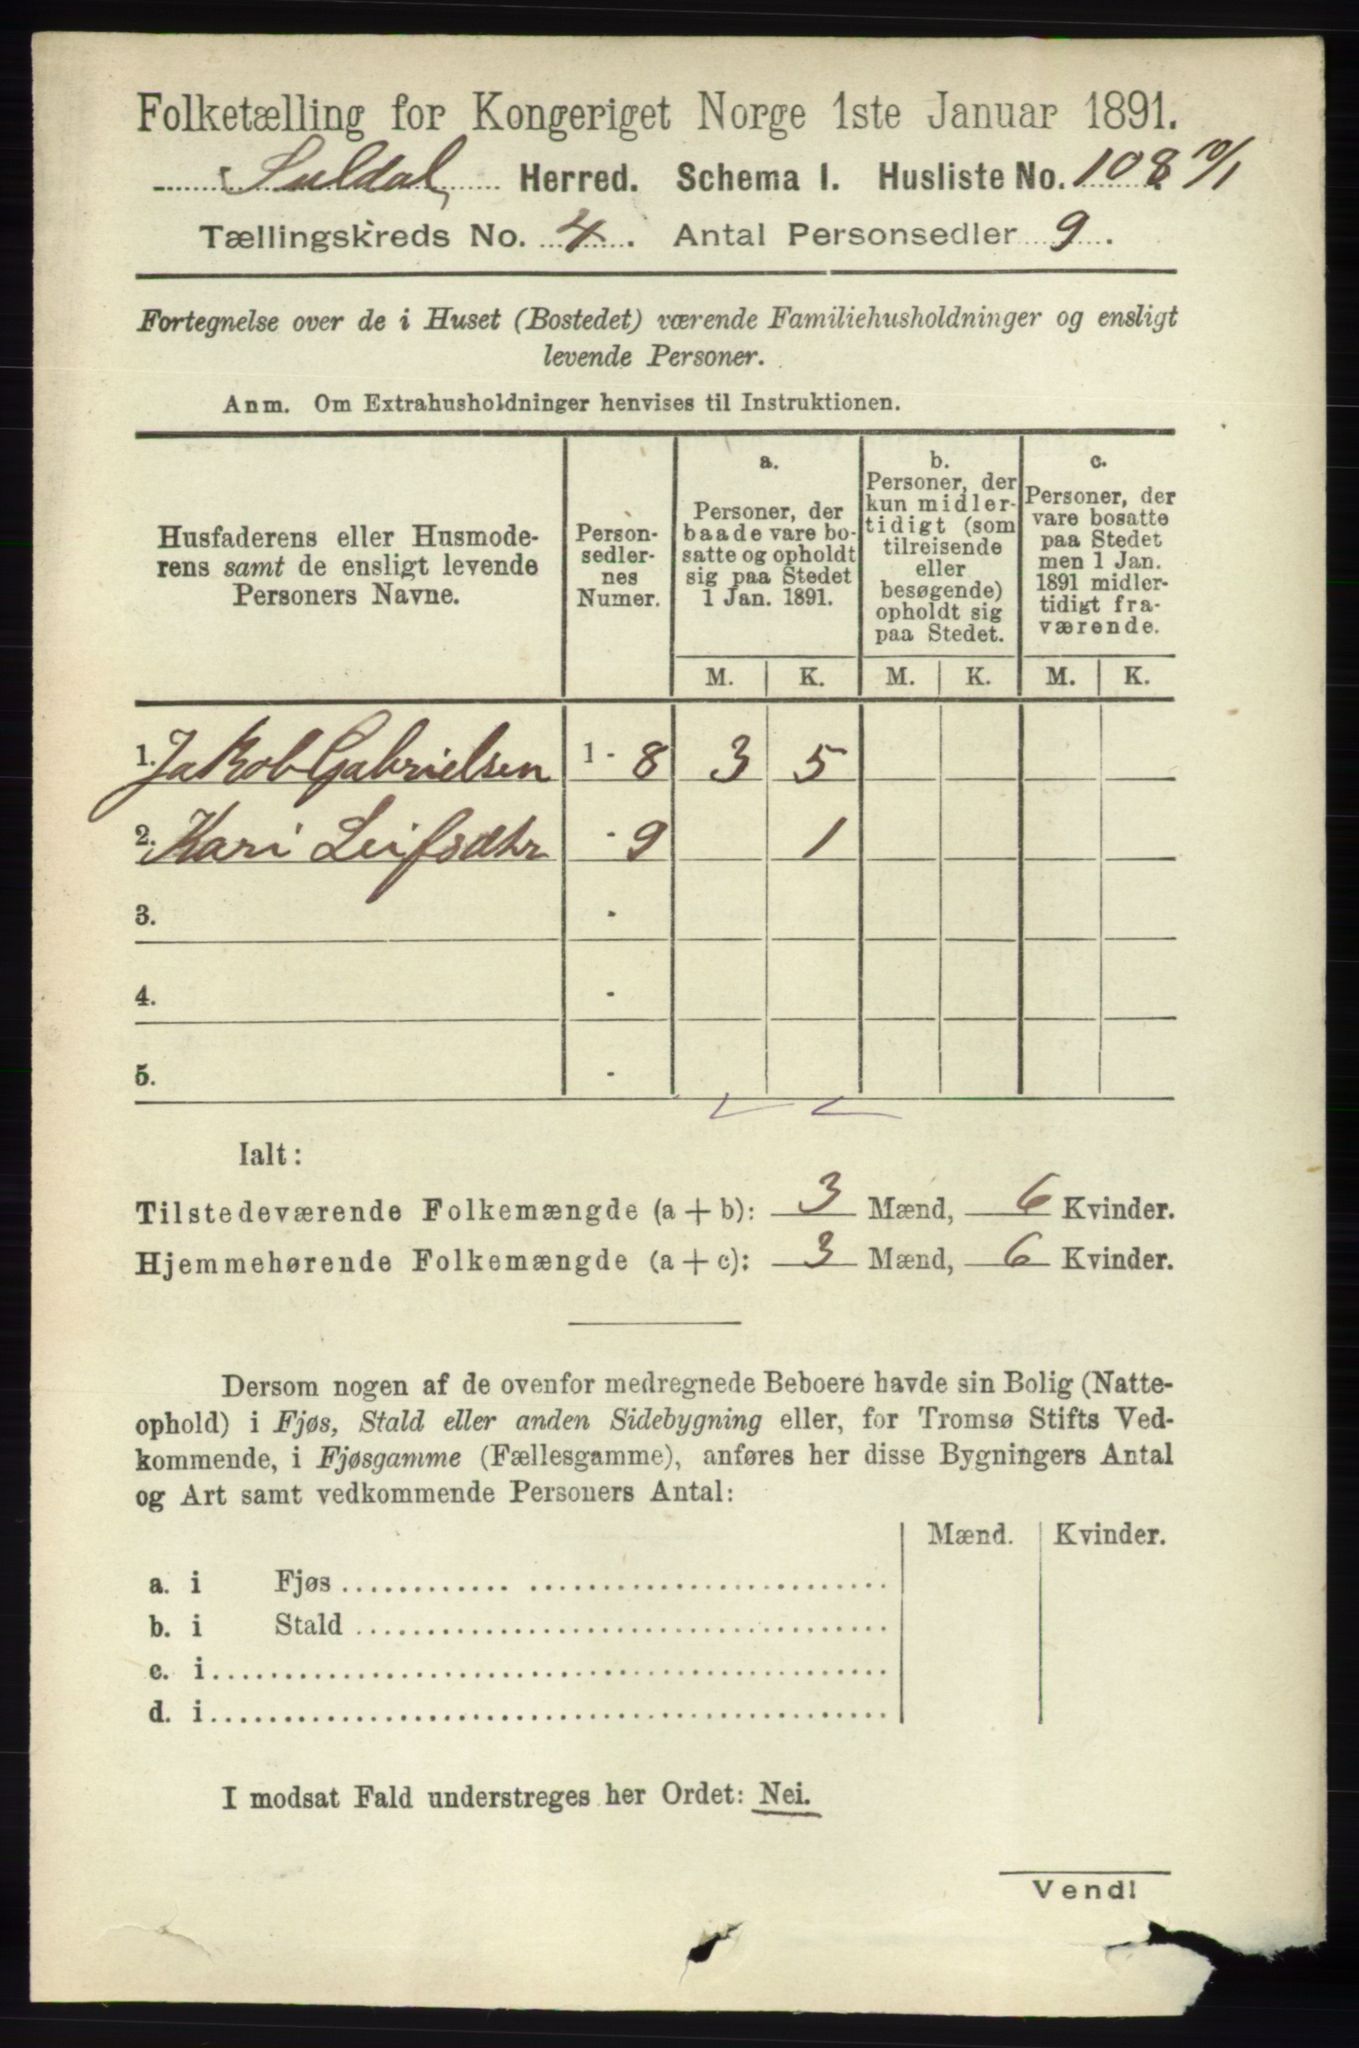 Folketælling for Kongeriget Norge 1ste Januar 1891.
Suldal Herred. Schema I. Husliste No. 108
Tællingskreds No. 4. Antal Personsedler 9.
Fortegnelse over de i Huset (Bostedet) værende Familiehusholdninger og ensligt
levende Personer.
Anm. Om Extrahusholdninger henvises til Instruktionen.
Husfaderens eller Husmode-
rens samt de ensligt levende
Personers Navne.
Person-
sedler-
nes
Numer.
a.
Personer, der
baade vare bo-
satte og opholdt
sig paa Stedet
1 Jan. 1891.
b.
Personer, der
kun midler-
tidigt (som
tilreisende
eller
besøgende)
opholdt sig
paa Stedet.
c.
Personer, der
vare bosatte
paa Stedet
men 1 Jan.
1891 midler-
tidigt fra-
værende.
M. K. M. K. M. K.
1. Jakob Gabrielsen 1 - 8 3 5
2. Kari Leifsdtr - 9 1
3. -
4. -
5. -
Ialt:
Tilstedeværende Folkemængde (a + b): 3 Mænd, 6 Kvinder.
Hjemmehørende Folkemængde (a + c): 3 Mænd, 6 Kvinder.
Dersom nogen af de ovenfor medregnede Beboere havde sin Bolig (Natte-
ophold) i Fjøs, Stald eller anden Sidebygning eller, for Tromsø Stifts Ved-
kommende, i Fjøsgamme (Fællesgamme), anføres her disse Bygningers Antal
og Art samt vedkommende Personers Antal:
Mænd. Kvinder.
a. i Fjøs
b. i Stald
c. i
d. i
I modsat Fald understreges her Ordet: Nei.
Vend!